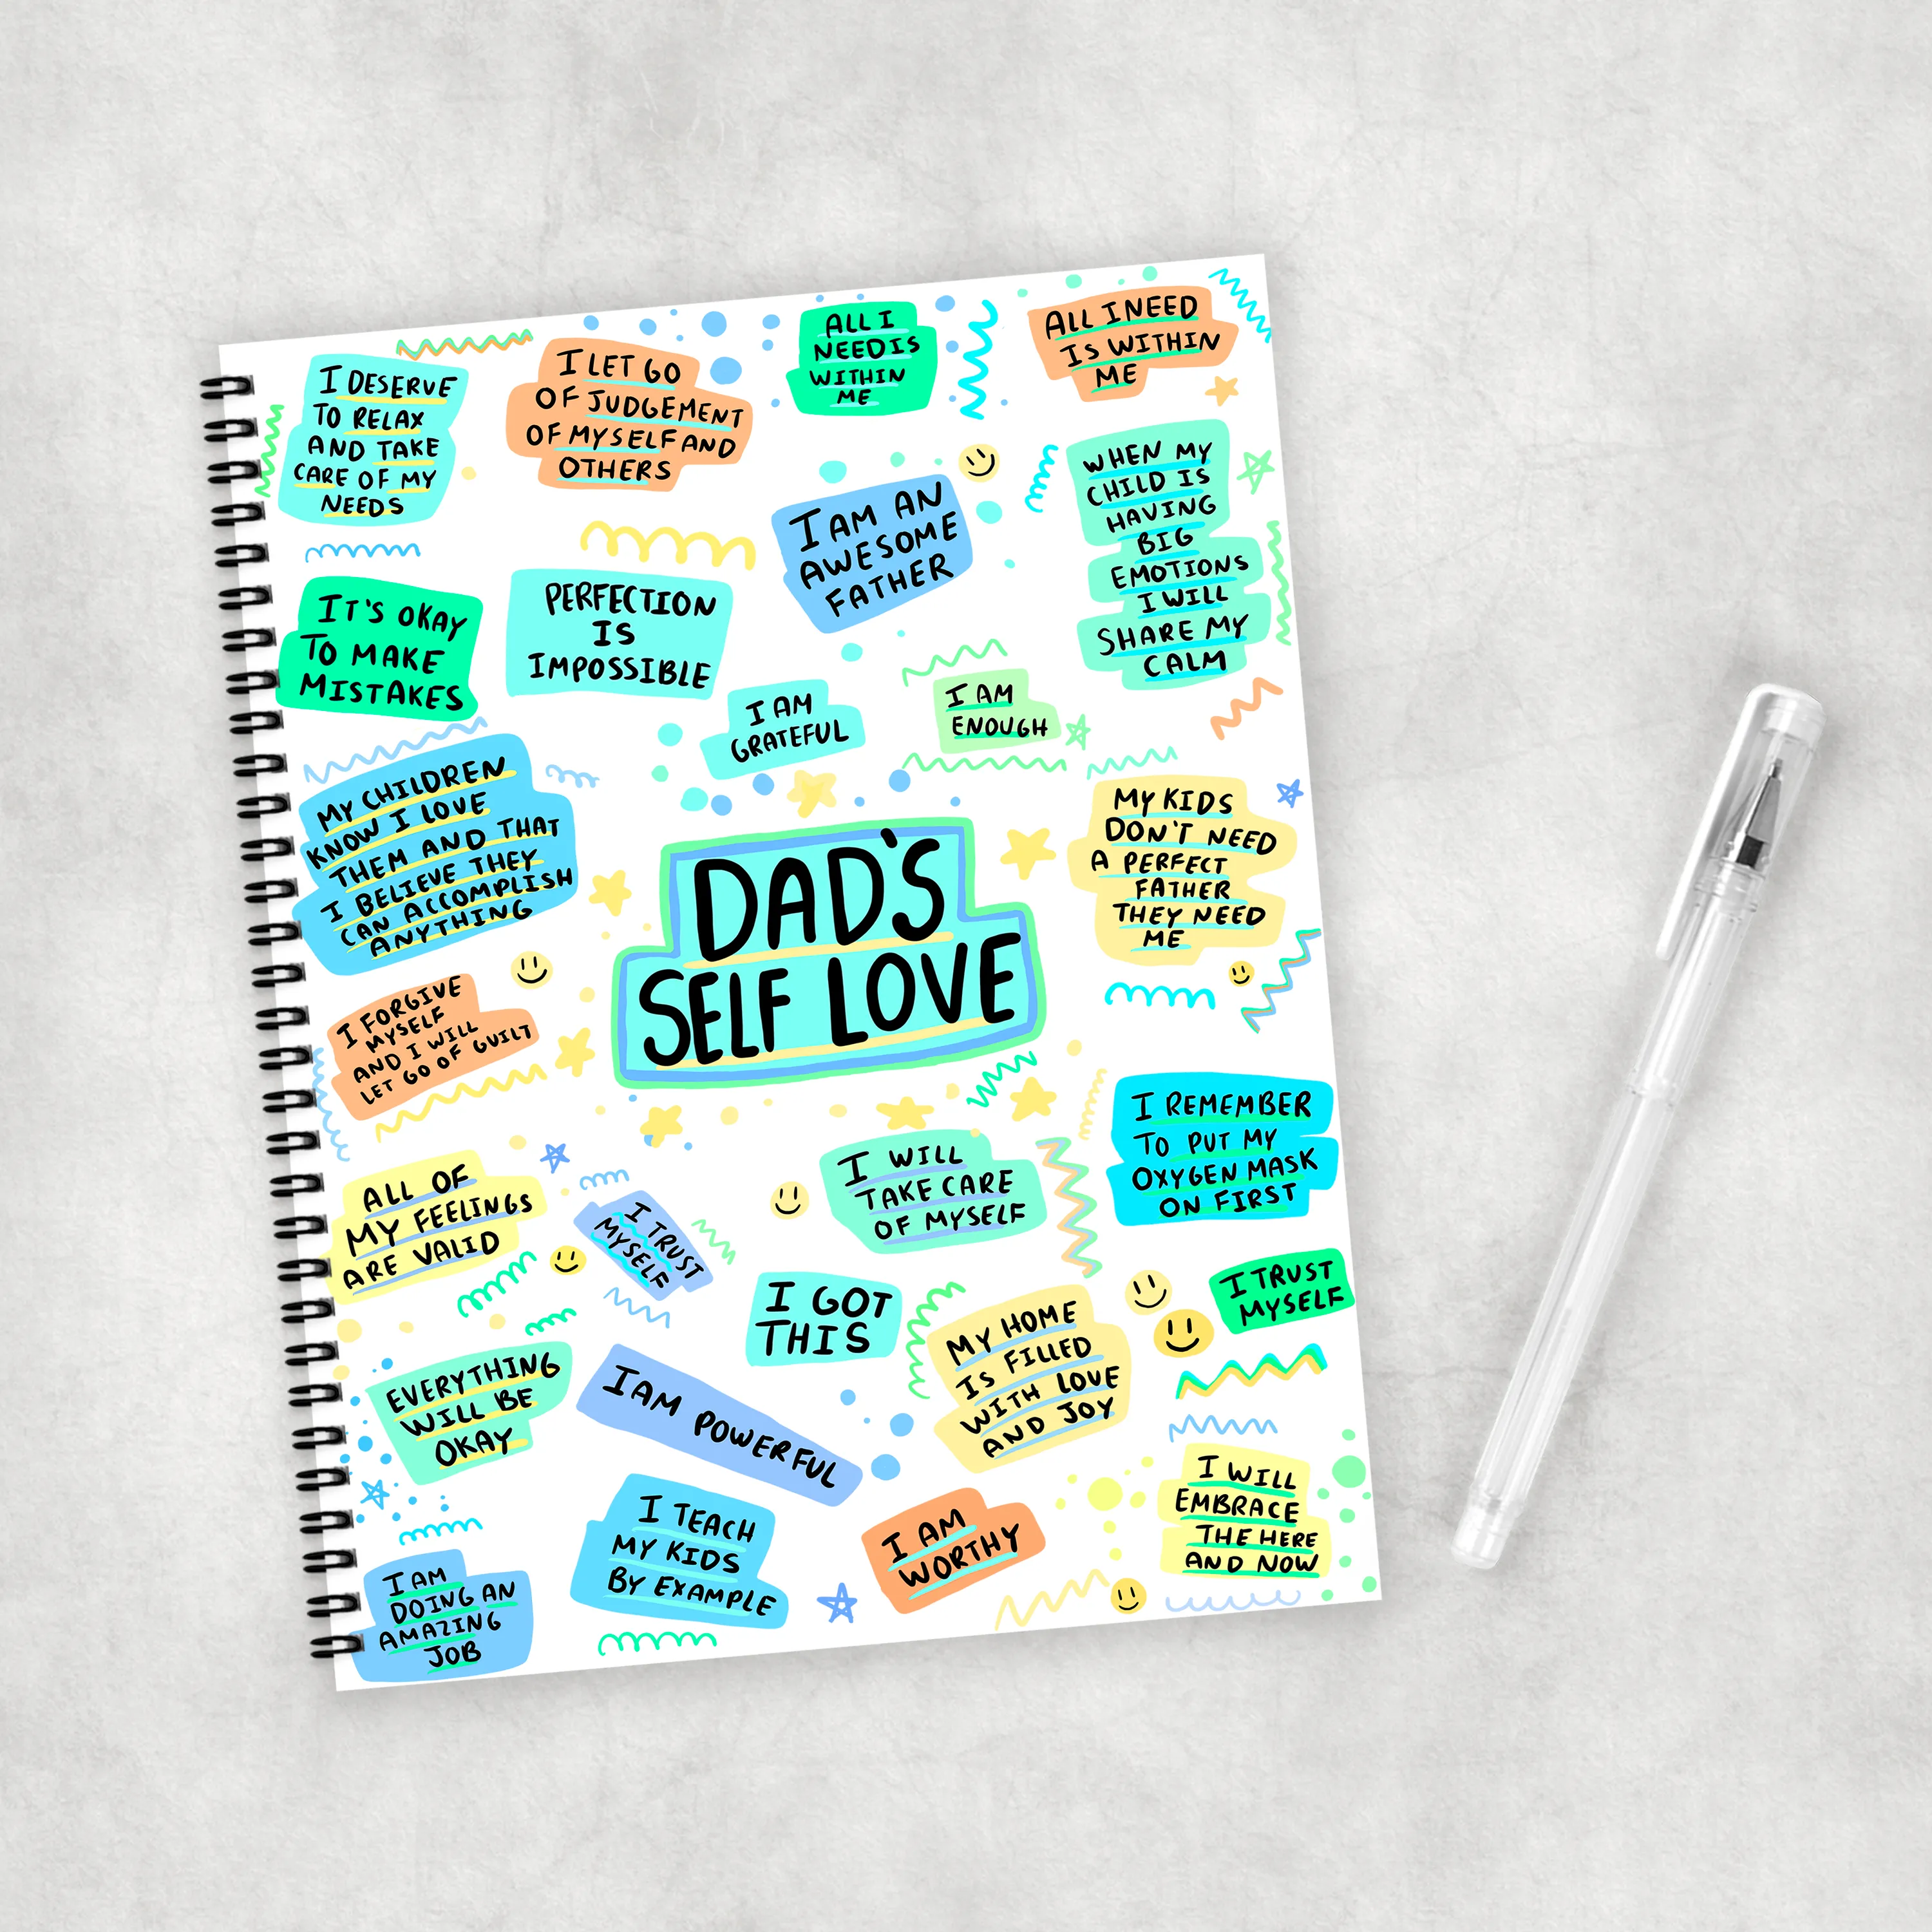 I DESERVE
TO RELAX
AND TAKE
CARE OF MY
NEEDS
I LET GO
OF JUDGEMENT
OF MYSELF AND
OTHERS
ALL I
NEED IS
WITHIN
ME
ALL I NEED
IS WITHIN
ME
I AM AN
AWESOME
FATHER
WHEN MY
CHILD IS
HAVING
BIG
EMOTIONS
I WILL
SHARE MY
CALM
IT'S OKAY
TO MAKE
MISTAKES
PERFECTION
IS
IMPOSSIBLE
I AM
GRATEFUL
I AM
ENOUGH
MY CHILDREN
KNOW I LOVE
THEM AND THAT
I BELIEVE THEY
CAN ACCOMPLISH
ANYTHING
DAD'S
SELF LOVE
MY KIDS
DON'T NEED
A PERFECT
FATHER
THEY NEED
ME
I FORGIVE
MYSELF
AND I WILL
LET GO OF GUILT
I REMEMBER
TO PUT MY
OXYGEN MASK
ON FIRST
ALL OF
MY FEELINGS
ARE VALID
I TRUST
MYSELF
I WILL
TAKE CARE
OF MYSELF
I GOT
THIS
MY HOME
IS FILLED
WITH LOVE
AND JOY
I TRUST
MYSELF
EVERYTHING
WILL BE
OKAY
I AM POWERFUL
I WILL
EMBRACE
THE HERE
AND NOW
I AM
DOING AN
AMAZING
JOB
I TEACH
MY KIDS
BY EXAMPLE
I AM
WORTHY